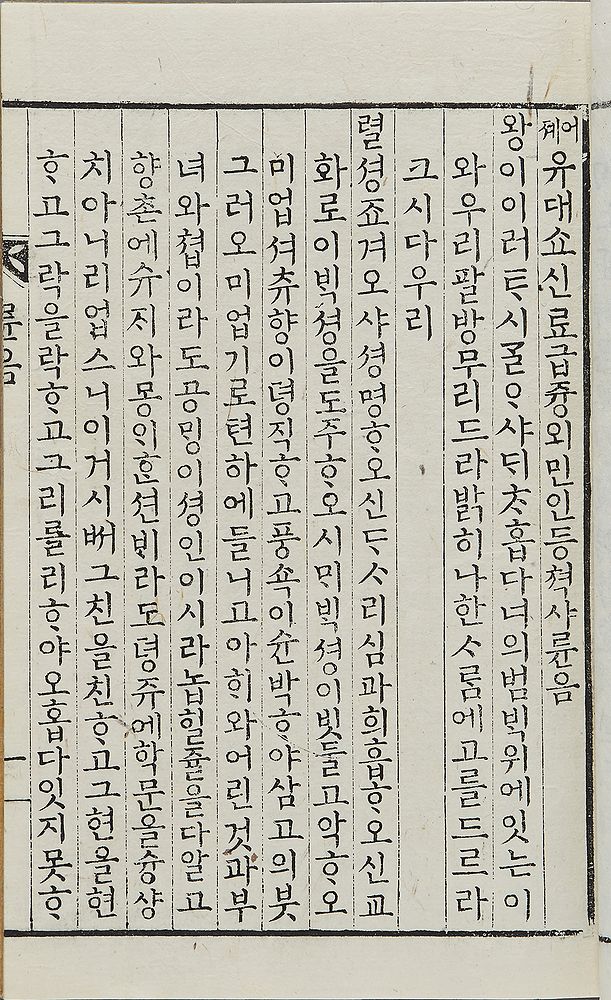 어졔유대쇼신료급즁외민인등쳑샤륜음
왕이이러ᄐᆞ시ᄀᆞᆯᄋᆞ샤ᄃᆡᄎᆞ흡다너의범ᄇᆡᆨ위에잇는이
와우리팔방무리드라밝히나한ᄉᆞ름에고를드르라
크시다우리
렬셩죠겨오샤셩명ᄒᆞ오신ᄃᆞᄉᆞ리심과희흡ᄒᆞ오신교
화로이ᄇᆡᆨ셩을도주ᄒᆞ오시ᄆᆡᄇᆡᆨ셩이빗둘고악ᄒᆞ오
미업셔츄향이뎡직ᄒᆞ고풍쇽이슌박ᄒᆞ야삼고의붓
그러오미업기로텬하에들니고아ᄒᆡ와어린것과부
녀와쳡이라도공ᄆᆡᆼ이셩인이시라놉힐쥴을다알고
향촌에슈ᄌᆡ와몽ᄋᆡᄒᆞᆫ션ᄇᆡ라도뎡쥬에학문을슝샹
치아니리업스니이거시ᄡᅥ그친을친ᄒᆞ고그현을현
ᄒᆞ고그락을락ᄒᆞ고그리를리ᄒᆞ야오홉다잇지못ᄒᆞ
륜음
一